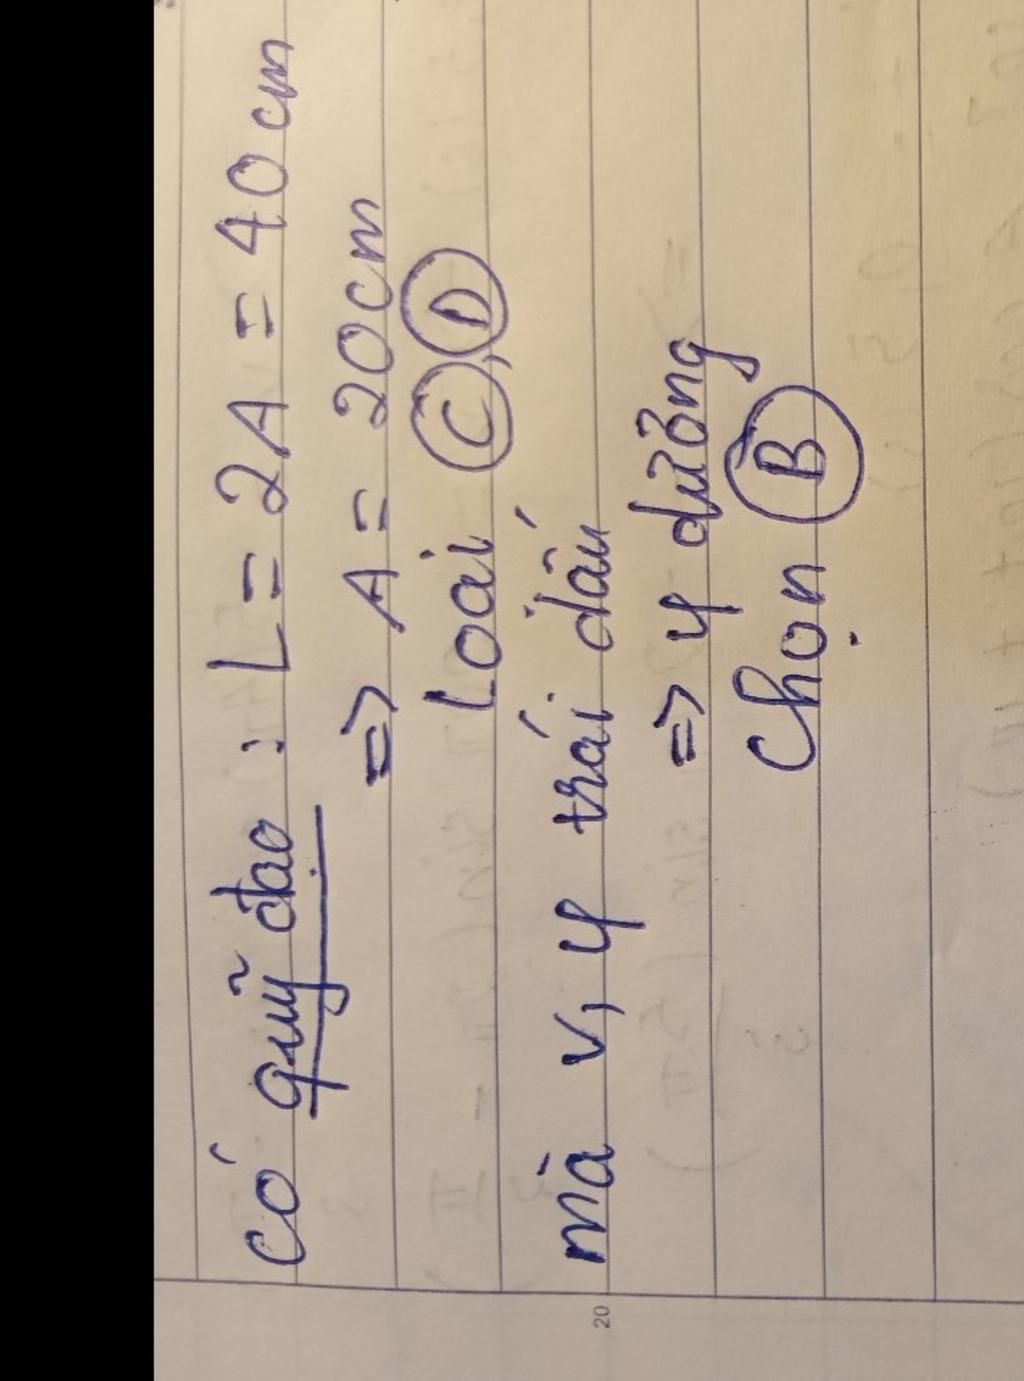 có quỹ đạo : L = 2A = 40 cm
=> A = 20cm
Loại C, D
mà v, φ trái dấu
=> φ dương
Chọn B
20